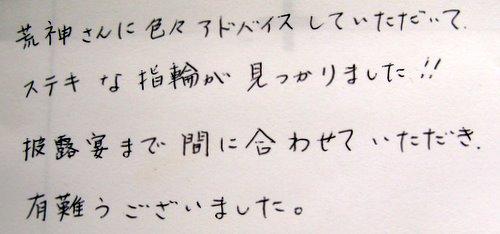 荒神さんに色々アドバイスしていただいて、
ステキな指輪が見つかりました!!
披露宴まで間に合わせていただき、
有難うございました。